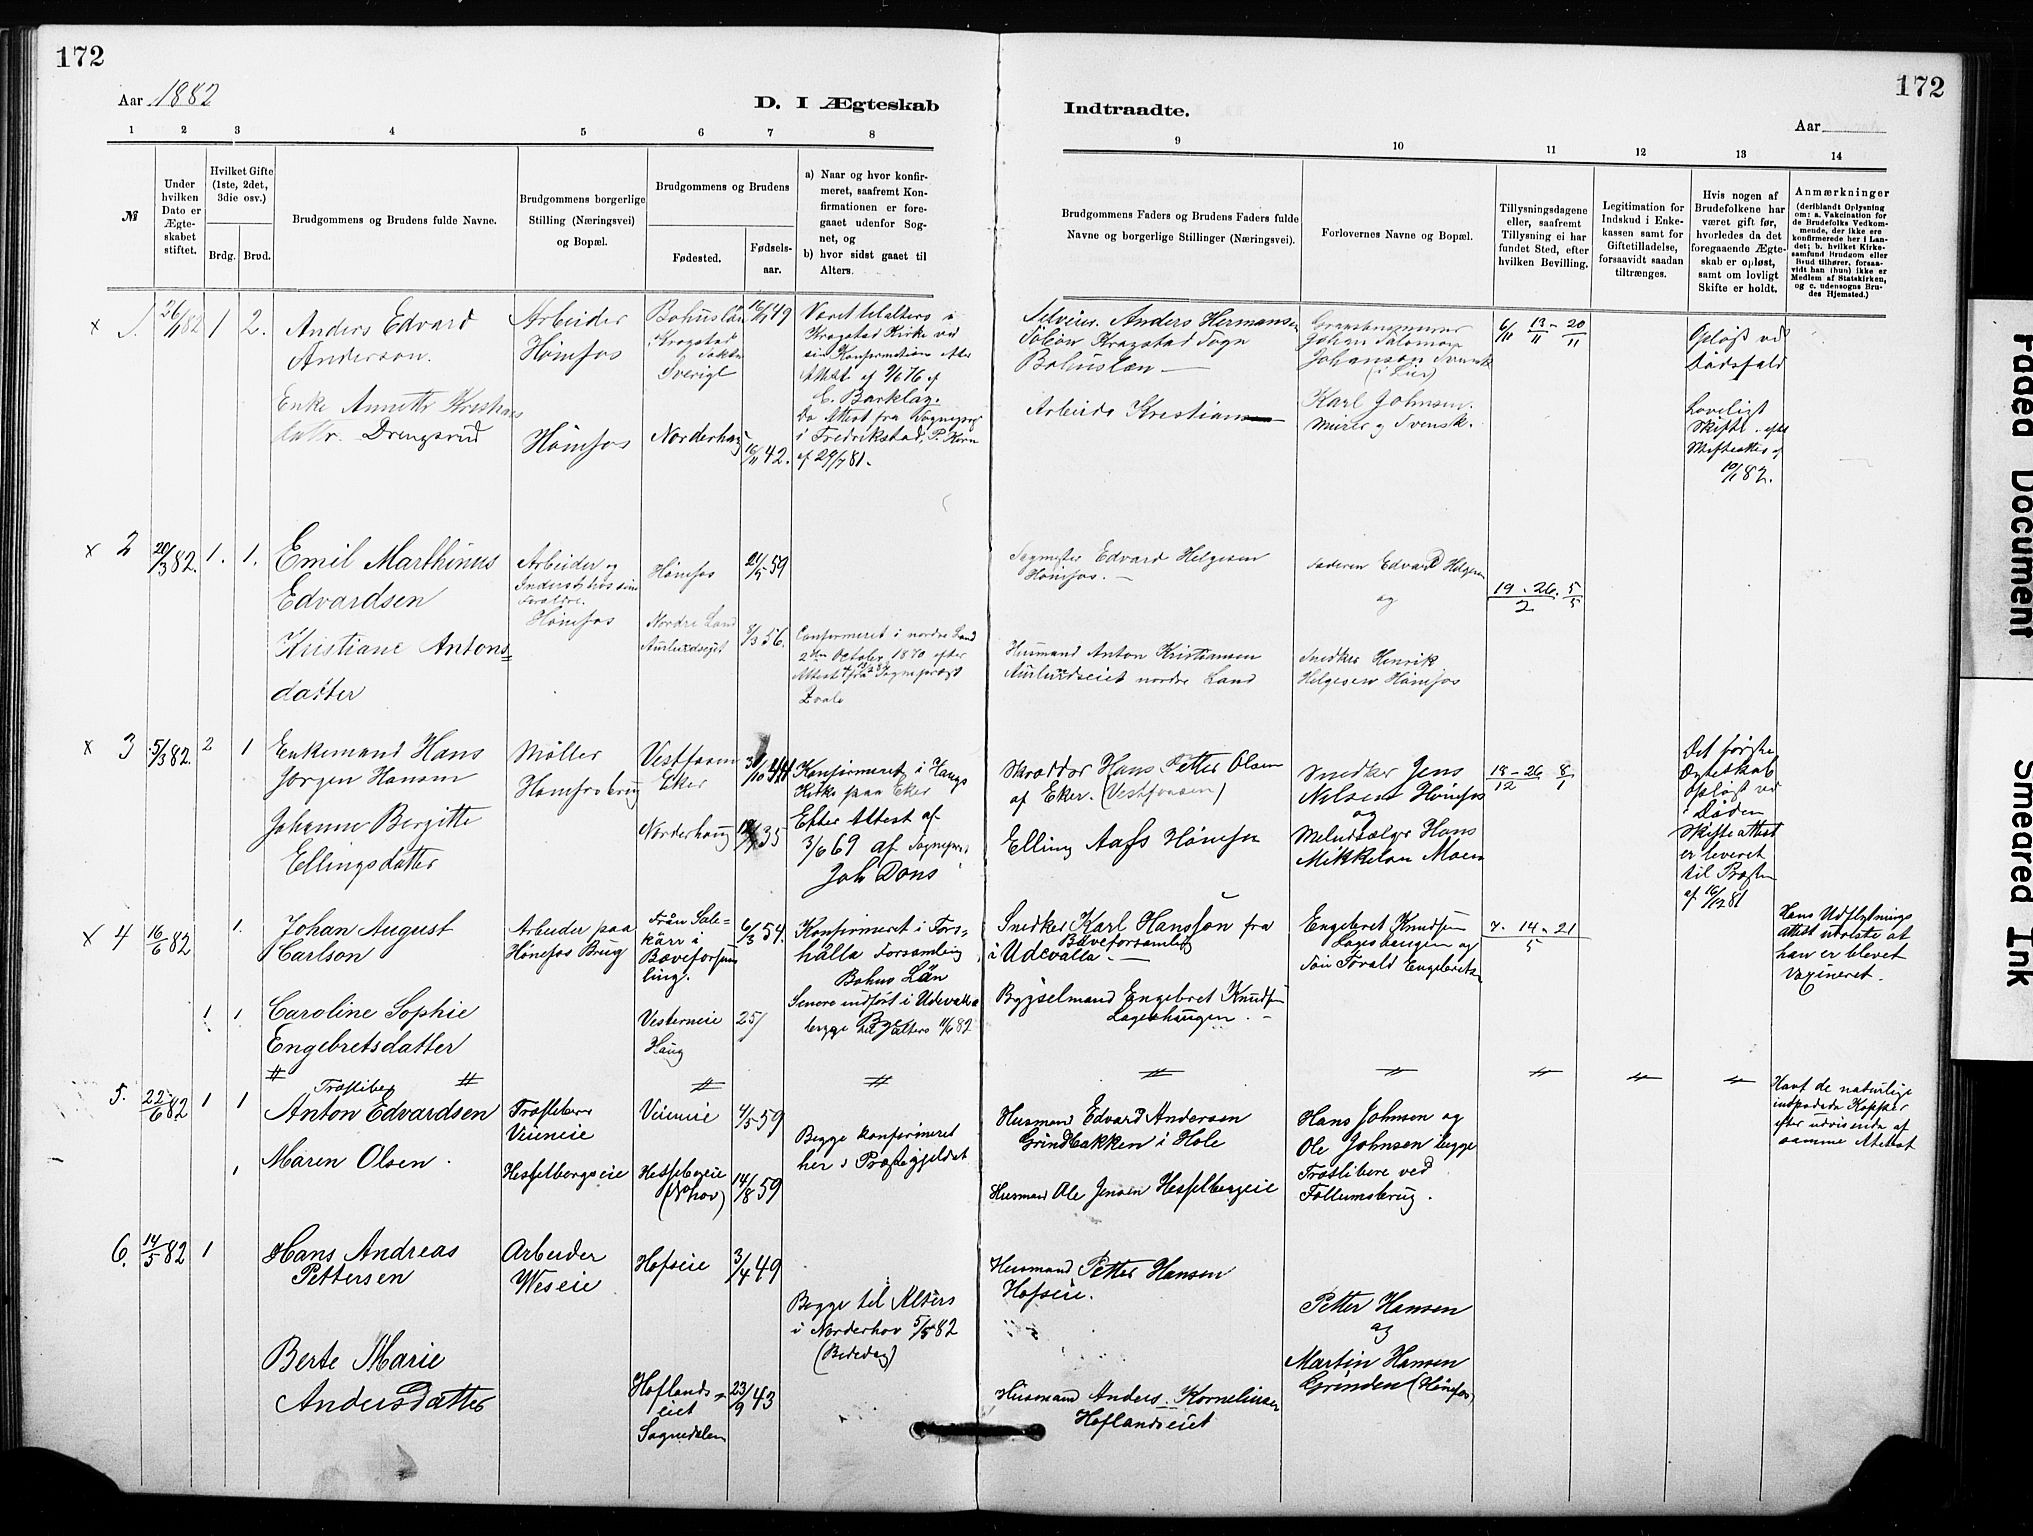 172
172
Aar 1882
D. I Ægteskab
Indtraadte.
Aar
1 2 3 4 5 6 7 8
9 10 11 12 13 14
№
Under hvilken Dato er Ægteskabet stiftet.
Hvilket Gifte (1ste, 2det, 3die osv.)
Brdg. Brud.
Brudgommens og Brudens fulde Navne.
Brudgommens borgerlige Stilling (Næringsvei) og Bopæl.
Brudgommens og Brudens
Fødested.
Fødsels-aar.
a) Naar og hvor konfir-
meret, saafremt Kon-
firmationen er fore-
gaaet udenfor Sog-
net, og
b) hvor sidst gaaet til
Alters.
Brudgommens Faders og Brudens Faders fulde
Navne og borgerlige Stillinger (Næringsvei).
Forlovernes Navne og Bopæl.
Tillysningsdagene
eller, saafremt
Tillysning ei har
fundet Sted, efter
hvilken Bevilling.
Legitimation for
Indskud i Enke-
kassen samt for
Giftetilladelse,
forsaavidt saadan
tiltrænges.
Hvis nogen af
Brudefolkene har
været gift før,
hvorledes da det
foregaaende Ægte-
skab er opløst,
samt om lovligt
Skifte er holdt.
Anmærkninger
(deriblandt Oplysning
om: a. Vakcination for
de Brudefolks Vedkom-
mende, der ikke ere
konfirmerede her i Lan-
det; b. hvilket Kirke-
samfund Brudgom eller
Brud tilhører, forsaa-
vidt han (hun) ikke er
Medlem af Statskirken,
og c. udensogns Bru-
des Hjemsted.)
x 1. 26/11 82 1 2.
Anders Edvard
Anderson.
Arbeider
Hønefos
Bohuslän
Krogstad
Sverige
16/1 49
Været til alters i
Krogstad Kirke ved
sin Konfirmation efter
Attest af
C. Barklay.
Do Attest fra Sognepr.
i Fredrikstad, P. Kern
af 29/7 81.
Anders Hermansen
Krogstad Sogn
Bohuslæn
Johan Salomon
Johanson Svensk
(i Lier)
6/11 13/11 - 20/11
Opløst ved
Dødsfald
Loveligt
Skifte efter
Skifteattest af
10/1 82.
Enke Annette Kristians
dattr. Drengsrud
Hønefos
Norderhaug
16/11 42.
Arbeider Kristian
Karl Johnsen.
Murer og Svensk.
x 2 20/3 82. 1. 1.
Emil Marthinus
Edvardsen
Arbeider og
Inderst hos sine
Foreldre.
Hønefos
Hønefos
21/5 59
Sagmester Edvard Helgesen
Hønefos.
Faderen Edvard Helgesen
og
19 - 26/2 5/5
Kristiane Antons=
datter
Nordre Land
8/3 56.
Confirmeret i nordre Land
2den October 1870 efter
Attest fra Sogneprest
Husmand Anton Kristiansen
nordre Land
Snedker Henrik
Helgesen Hønefos
x 3 5/3 82. 2 1
Enkemand Hans
Jørgen Hansen
Møller
Hønefosbrug
Vestfosen
Eker
Konfirmeret i Haugs
Kirke paa Eker
Efter Attest af
3/6 69 af Sognepr.
Joh Dons
Skrædder Hans Petter Olsen
af Eker. (Vestfossen)
Snedker Jens
Nilsen Hønefos
og
18 - 26/12 8/1
Det første
Ægteskab
Opløst ved
Døden
Skifteattest
er leveret
til Præsten
af 16/12 81
Johanne Bergitte
Ellingsdatter
Norderhaug
35
Elling Aafs Hønefos
Meludsælger Hans
Mikkelsen Moen
x 4 16/6 82 1.
Johan August
Carlson
Arbeider paa
Hønefos Brug
Från Sale=
kärr i
Bäveforsam
ling.
6/3 54.
Konfirmeret i Fors=
hälla Forsamling
Bohus Län
Senere indført i Udevalla
begge til Alters 11/6 82
Snedker Karl Hansson fra
Bäveforsamling
i Udevalla.
Engebret Knudsen
Lageshaugen og
Søn Tovald Engebretsen
7. 14 - 21/5
Hans Udflytnings
attest udviste at
han er blevet
Vaxineret.
1 1.
Caroline Sophie
Engebretsdatter
Vesterneie
Haug
25/
Bygselmand Engebret Knudsen
Lageshaugen.
5. 22/6 82 1 1
Træstibeg
Anton Edvardsen
Veieneie
Veieneie
4/5 59
Begge konfirmeret
her i Præstegjeldet
Husmand Edvard Andersen
Grindbakken i Hole
Hans Johnsen og
Ole Johnsen begge
ved
Follumsbrug.
Havt de naturlige
indpodede Kopper
efter udvisende af
samme Attest
1
Maren Olsen.
Hesselbergseie
Hesselbergeie
(N hov)
14/8 59
Husmand Ole Jensen Hesselbergeie
6. 14/5 82 1
Hans Andreas
Pettersen
Arbeider
Weseie
Hofseie
3/4 49
Begge til Alters
i Norderhov 5/5 82
(Bededag)
Husmand Petter Hansen
Hofseie.
Petter Hansen
og
Martin Hansen
Grinden (Hønefos)
Berte Marie
Andersdatter
Hoflands=
eiet
Sognedalen
23/9 43
Husmand Anders Kornelius​en
Hoflandseiet
Faded Document
Smeared Ink